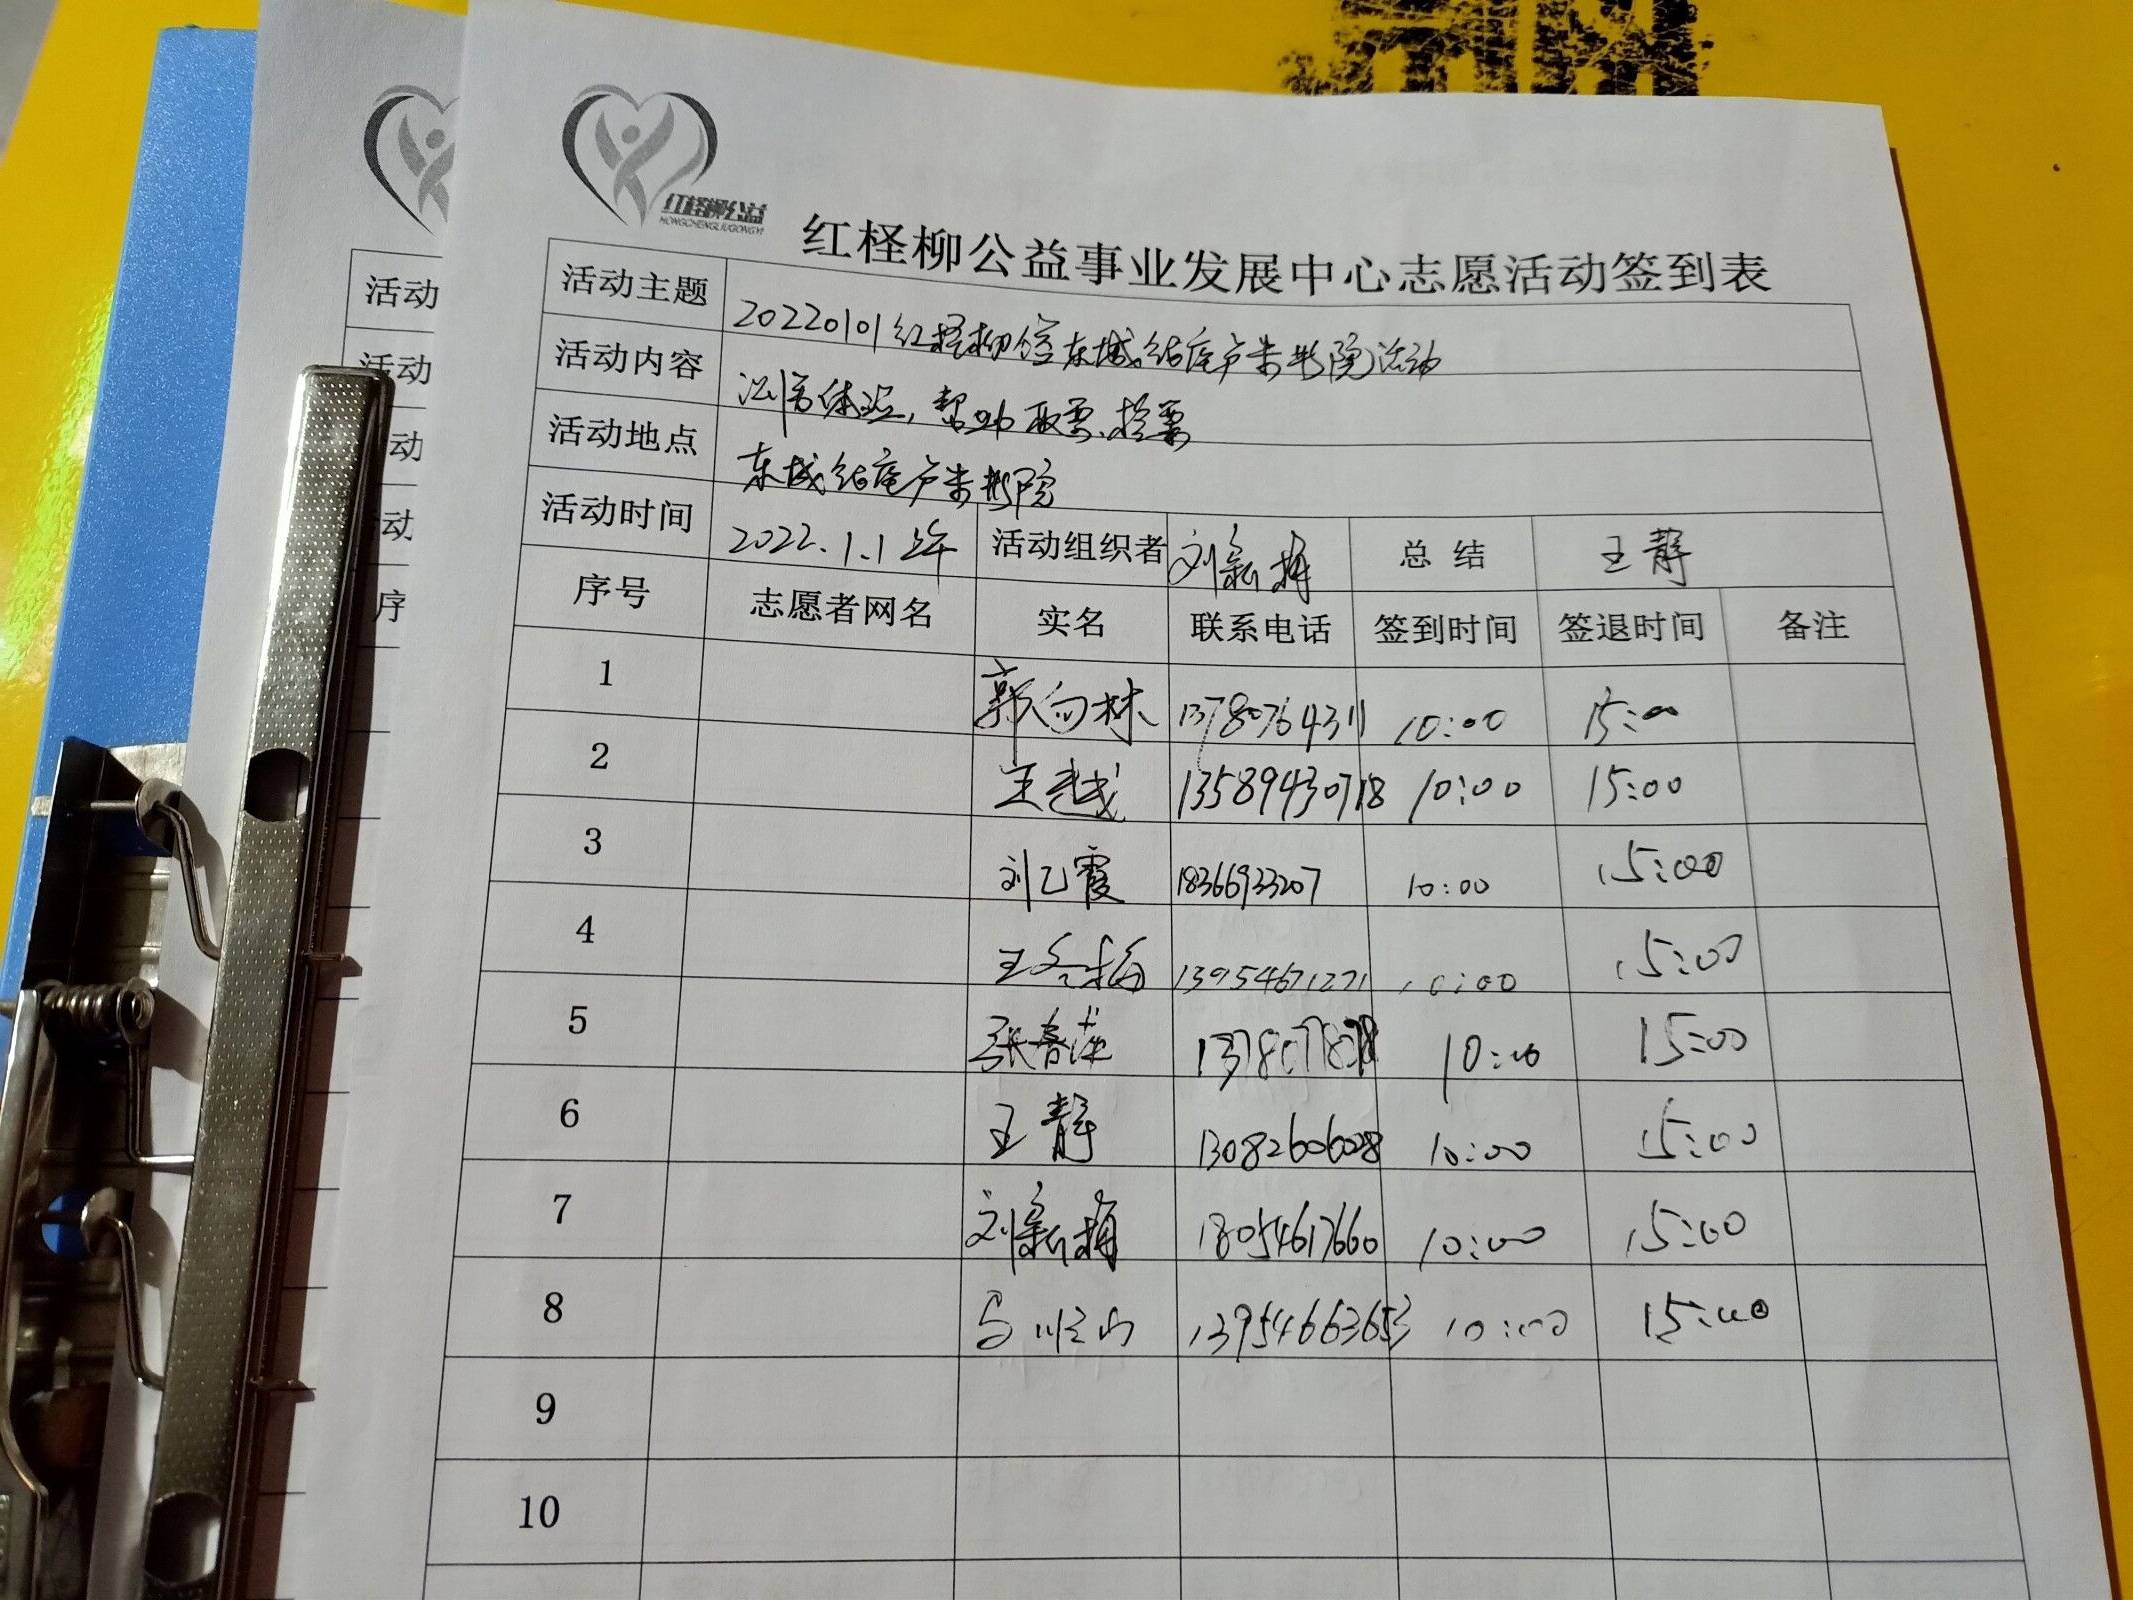 红柽柳公益
HONGCHENGLIUGONGYI
红柽柳公益事业发展中心志愿活动签到表
活动主题 20220101红柽柳公益东城 活动
活动内容 测 体温，帮助取票、检票
活动地点 东城
活动时间 2022.1.1上午 活动组织者 刘新梅 总结 王静
序号 志愿者网名 实名 联系电话 签到时间 签退时间 备注
1 郭向林 13780764311 10:00 15:00
2 王越 13589430718 10:00 15:00
3 刘乙霞 18366933207 10:00 15:00
4 王冬梅 13954671271 10:00 15:00
5 张春莲 10:00 15:00
6 王静 13082606028 10:00 15:00
7 刘新梅 18054617660 10:00 15:00
8 13954663653 10:00 15:00
9
10
活动
活动
动
动
序